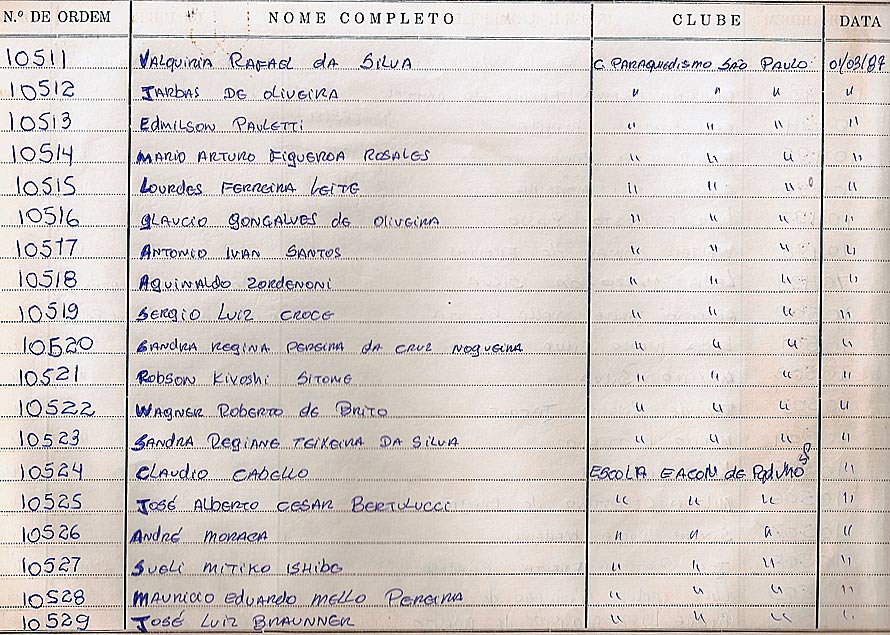 N.º DE ORDEM NOME COMPLETO CLUBE DATA
10511 VALQUIRIA RAFAEL DA SILVA C. PARAQUEDISMO SÃO PAULO 01/03/87
10512 JARBAS DE OLIVEIRA " " " "
10513 EDMILSON PAULETTI " " " "
10514 MARIO ARTURO FIGUEROA ROSALES " " " "
10515 LOURDES FERREIRA LEITE " " " "
10516 GLAUCIO GONCALVES DE OLIVEIRA " " " "
10517 ANTONIO IVAN SANTOS " " " "
10518 AGUINALDO ZORDENONI " " " "
10519 SERGIO LUIZ CROCE " " " "
10520 SANDRA REGINA PEREIRA DA CRUZ NOGUEIRA " " " "
10521 ROBSON KIYOSHI SITOME " " " "
10522 WAGNER ROBERTO DE BRITO " " " "
10523 SANDRA REGIANE TEIXEIRA DA SILVA " " " "
10524 CLAUDIO CABELLO ESCOLA EACON DE SP "
10525 JOSÉ ALBERTO CESAR BERTULUCCI " " " "
10526 ANDRÉ MORACA " " " "
10527 SUELI MITIKO ISHIBE " " " "
10528 MAURICIO EDUARDO MELLO PEREIRA " " " "
10529 JOSÉ LUIZ BRAUNNER " " " "